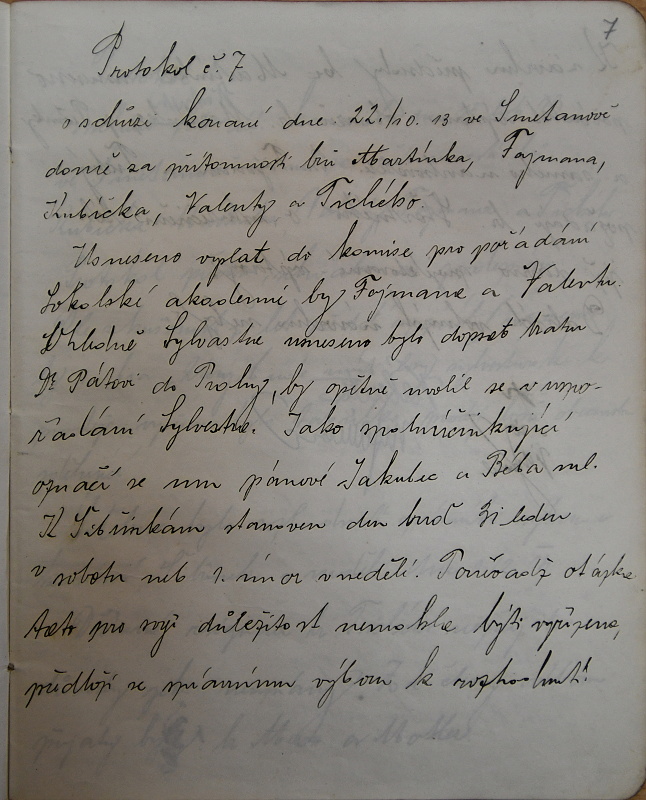 7
Protokol č. 7
o schůzi konané dne 22./10. 13 ve Smetanově
domě za přítomnosti br. Martínka, Fojmana,
Kubíčka, Valenty a Tichého.
Usneseno vyslat do komise pro pořádání
Sokolské akademie br. Fojmana a Valentu.
Ohledně Sylvestra usneseno bylo dopsat bratru
Dr Pátovi do Prahy, by opětně uvolil se v uspo-
řádání Sylvestra. Jako spoluúčinkující
označí se mu pánové Jakubec a Béba ml.
K Šibřinkám stanoven den buď 31 leden
v sobotu neb 1. únor v neděli. Poněvadž otázka
tato pro svoji důležitost nemohla býti vyřízena,
předloží se správnímu výboru k rozhodnutí.